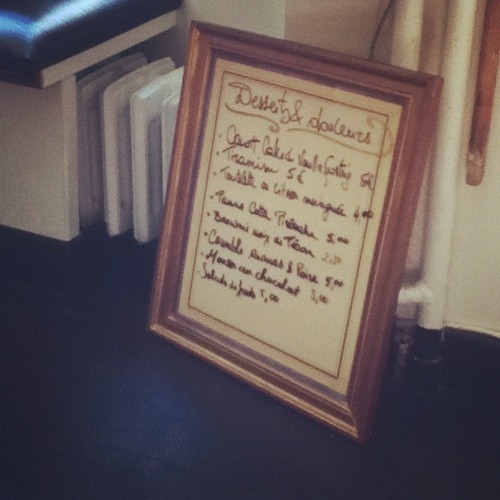 Desserts & douceurs
Carott Cake & 5€
Tiramisu 5€
Tartelette au citron meringuée 4,00
Panna Cotta 5.00
Brownie noix de Pécan
Crumble Ananas & Poire 5,00
Mousse au chocolat 3,00
Salade de fruits 5,00